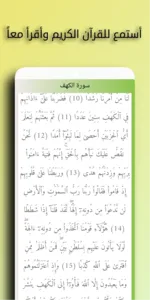 أستمع للقرآن الكريم وأقرأ معاً
سورة الكهف
لنا من أمرنا رشدا (10) فضربنا على ءاذانهم
في الكهف سنين عددا (11) ثم بعثنهم لنعلم
أي الحزبين أحصى لما لبثوا أمدا (12) نحن
نقص عليك نبأهم بالحق إنهم فتية ءامنوا
بربهم وزدنهم هدى (13) وربطنا على قلوبهم
إذ قاموا فقالوا ربنا رب السموت والأرض
لن ندعوا من دونه إلها لقد قلنا إذا شططا
(14) هؤلاء قومنا اتخذوا من دونه ءالهة
لولا يأتون عليهم بسلطن بين فمن أظلم ممن
افترى على الله كذبا (15) وإذ اعتزلتموهم
وما يعبدون إلا الله فأوا إلى الكهف